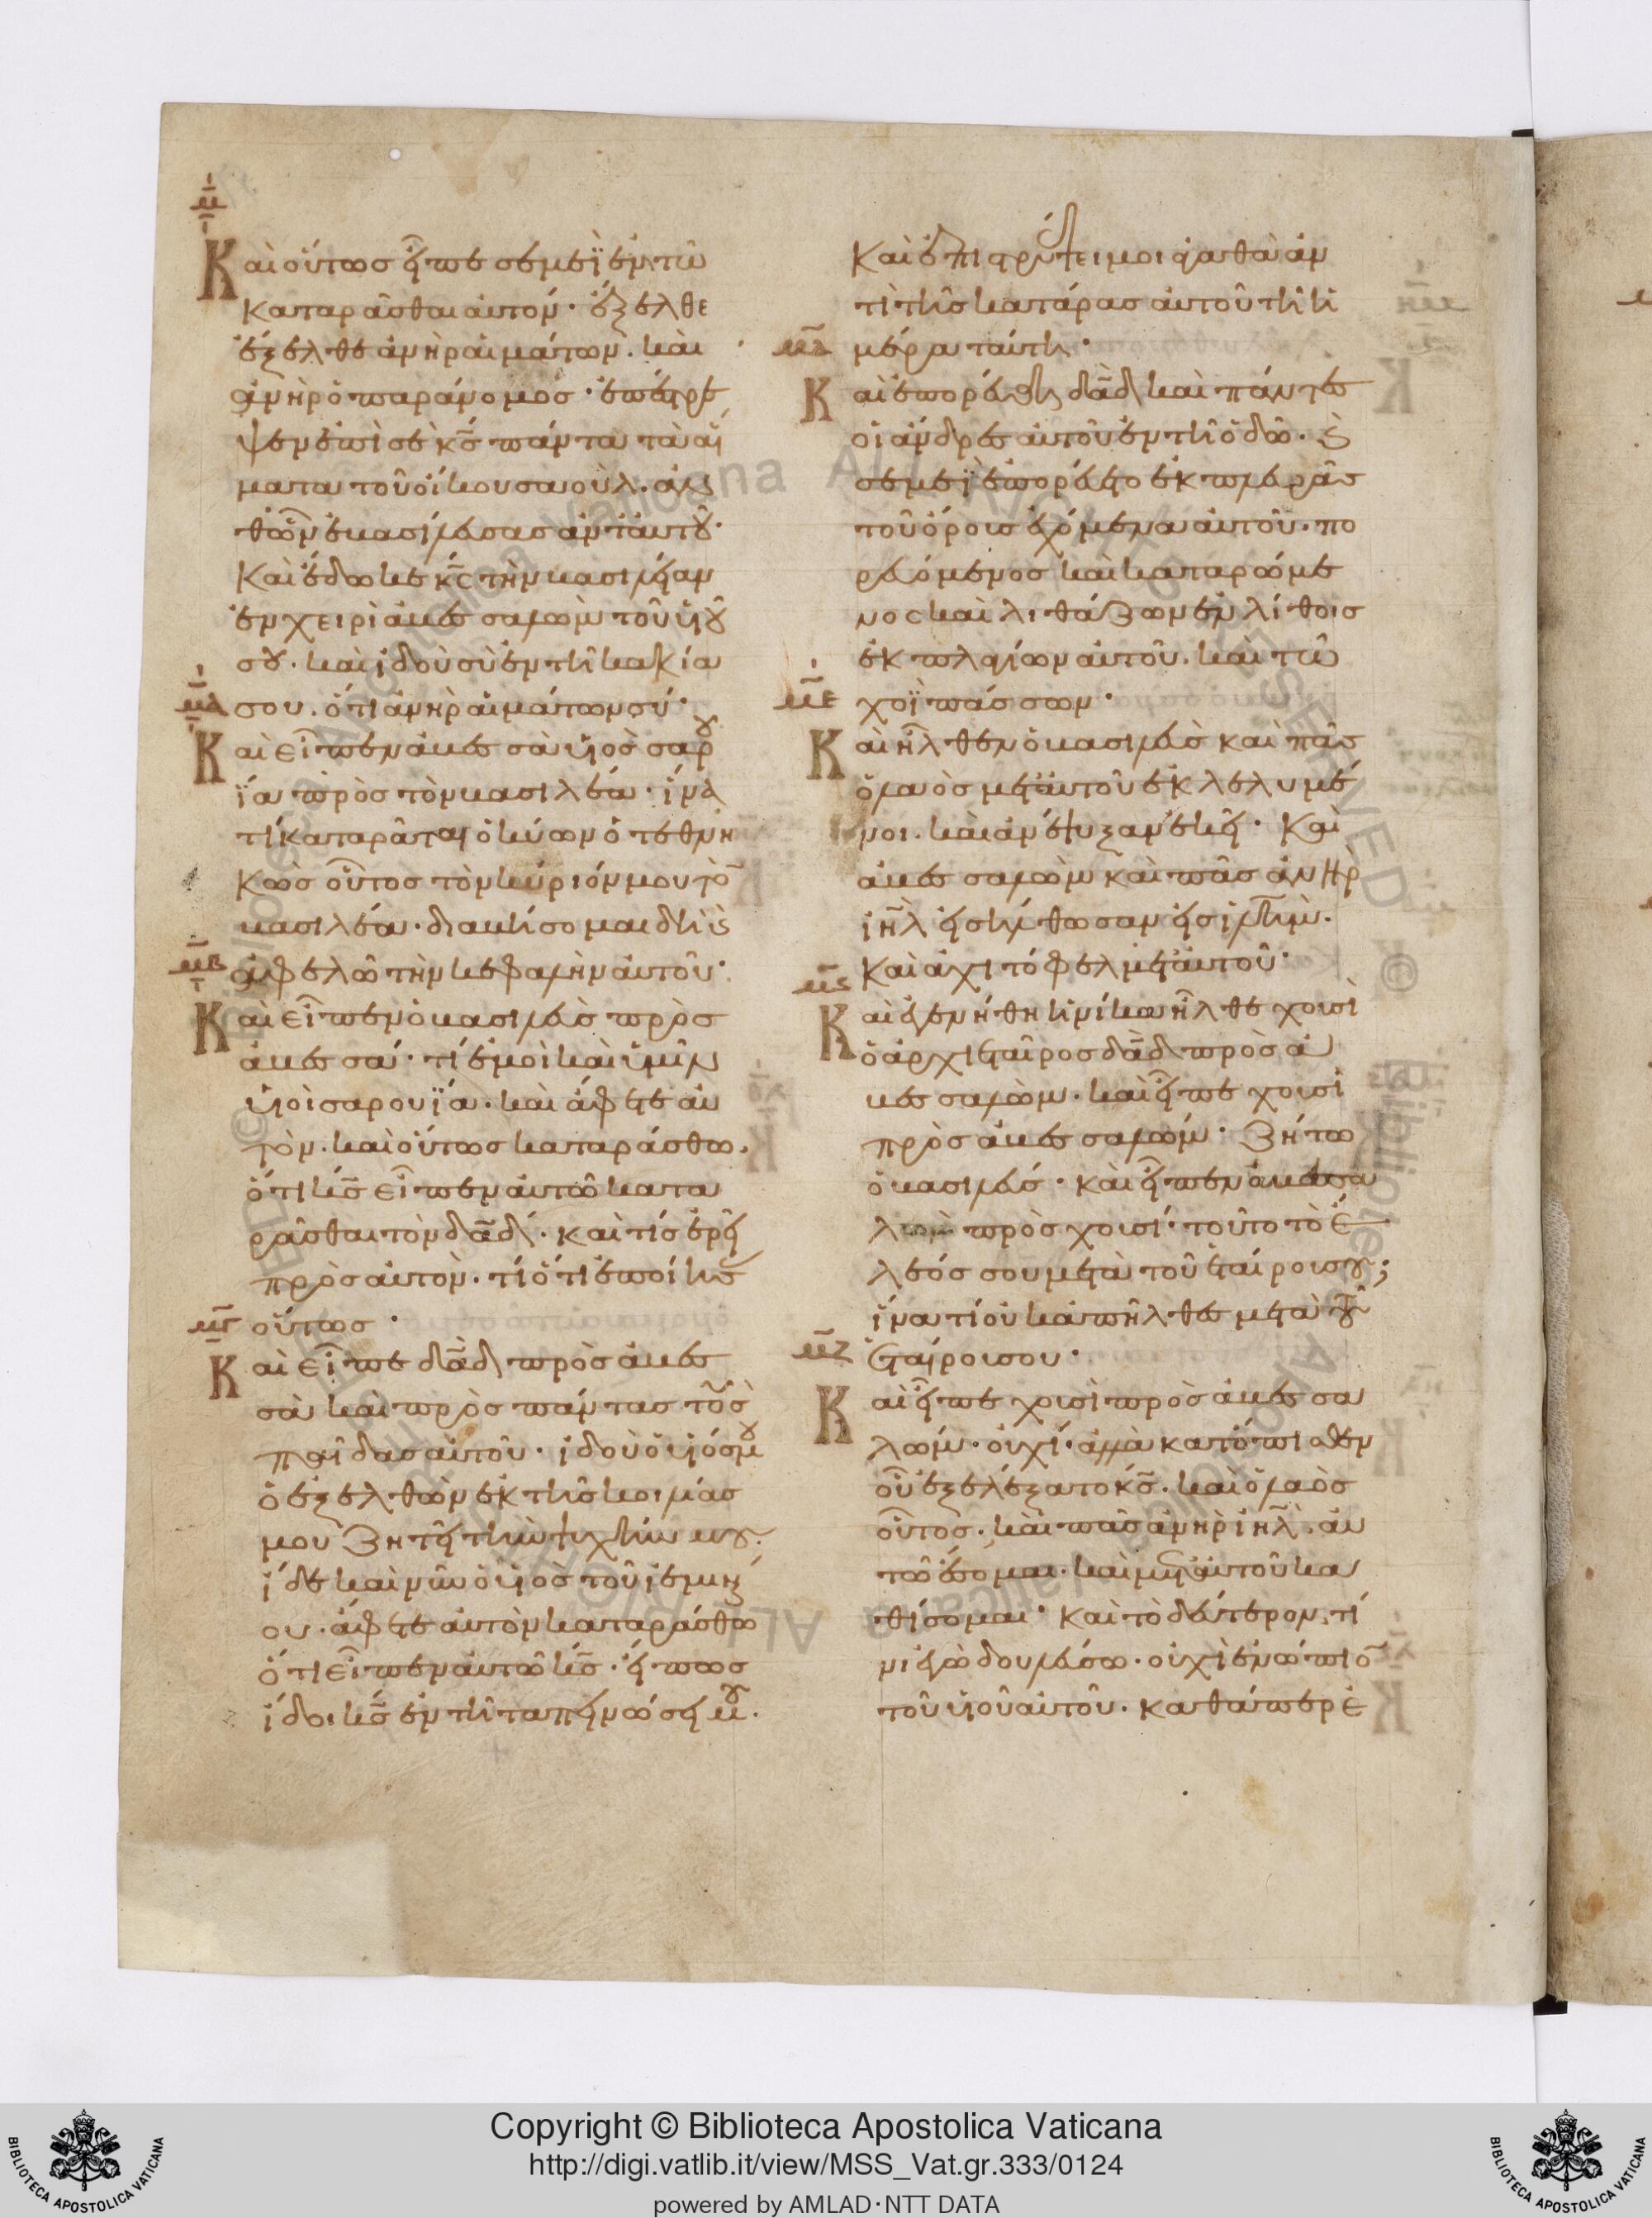 μ
Καὶ οὕτως εἶπε σεμεῒ ἐν τῶ
καταρᾶσθαι αὐτόν· ἔξελθε
ἔξελθε ἀνὴρ αἱμάτων. καὶ
ἀνὴρ ὁ παράνομος· ἐπέστρε
ψεν ἐπὶ σὲ κ̅ς πάντα τὰ αἵ
ματα τοῦ οἴκου σαούλ. ἀν
θ' ὧν ἐβασίλευσας ἀντ' αὐτοῦ·
Καὶ ἔδωκε κ̅ς τὴν βασιλείαν
ἐν χειρὶ ἀβεσσαλὼμ τοῦ υἱοῦ
σου. καὶ ἰδοὺ σὺ ἐν τῆ κακία
μα
σου. ὅτι ἀνὴρ αἱμάτων σύ·
Καὶ εἶπεν ἀβεσσὰ υἱὸς σαρου
ΐα πρὸς τὸν βασιλέα· ἵνα
τί καταρᾶται ὁ κύων ὁ τεθνη
κὼς οὗτος τὸν κύριόν μου τὸν
βασιλέα· διαβήσομαι δὴ καὶ
μβ
ἀφελῶ τὴν κεφαλὴν αὐτοῦ·
Καὶ εἶπεν ὁ βασιλεὺς πρὸς
ἀβεσσά· τί ἐμοὶ καὶ ὑμῖν
υἱοὶ σαρουΐα. καὶ ἄφετε αὐ
τὸν. καὶ οὕτως καταράσθω.
ὅτι κ̅ς εἶπεν αὐτῶ κατα
ρᾶσθαι τὸν δα̅δ. καὶ τίς ἐρεῖ
πρὸς αὐτὸν. τί ὅτι ἐποίησας
μγ
οὕτως·
Καὶ εἶπε δα̅δ πρὸς ἀβεσ
σὰ καὶ πρὸς πάντας τοὺς
παῖδας αὐτοῦ· ἰδοὺ ὁ υἱός μου
ὁ ἐξελθὼν ἐκ τῆς κοιλίας
μου ζητεῖ τὴν ψυχήν μου.
ἴδε καὶ νῦν ὁ υἱὸς τοῦ ἰεμιν
ου. ἄφετε αὐτὸν καταράσθω
ὅτι εἶπεν αὐτῶ κ̅ς. εἴ πως
ἴδοι κ̅ς ἐν τῆ ταπεινώσει μου.
Καὶ ἐπιστρέψει μοι ἀγαθὰ ἀν
τὶ τῆς κατάρας αὐτοῦ τῆ ἡ
μδ
μέρα ταύτη·
Καὶ ἐπορεύθη δα̅δ καὶ πάντες
οἱ ἄνδρες αὐτοῦ ἐν τῆ ὁδῶ. καὶ
σεμεῒ ἐπορεύετο ἐκ πλευρᾶς
τοῦ ὄρους ἐχόμενα αὐτοῦ. πο
ρευόμενος καὶ καταρώμε
νος καὶ λιθάζων ἐν λίθοις
ἐκ πλαγίων αὐτοῦ. καὶ τῶ
με
χοῒ πάσσων·
Καὶ ἦλθεν ὁ βασιλεὺς καὶ πᾶς
ὁ λαὸς μετ' αὐτοῦ ἐκλελυμέ
νοι. καὶ ἀνέψυξαν ἐκεῖ· Καὶ
ἀβεσσαλὼμ καὶ πᾶς ἀνὴρ
ἰη̅λ εἰσήλθωσαν εἰς ἰλη̅μ.
Καὶ ἀχιτόφελ μετ' αὐτοῦ·
μϛ
Καὶ ἐγενήθη ἡνίκα ἦλθε χουσὶ
ὁ ἀρχιεταῖρος δα̅δ πρὸς ἀ
βεσσαλὼμ. καὶ εἶπε χουσὶ
πρὸς ἀβεσσαλώμ· Ζήτω
ὁ βασιλεύς· καὶ εἶπεν ἀβεσσα
λὼμ πρὸς χουσί· τοῦτο τὸ ἔ
λεός σου μετὰ τοῦ ἑταίρου σου;
ἵνα τί οὐκ ἀπῆλθες μετὰ τοῦ
μζ
ἑταίρου σου·
Καὶ εἶπε χουσὶ πρὸς ἀβεσσα
λώμ. οὐχί· ἀλλὰ κατόπισθεν
οὗ ἐξελέξατο κ̅ς. καὶ ὁ λαὸς
οὗτος. καὶ πᾶς ἀνὴρ ἰη̅λ. αὐ
τῶ ἔσομαι. καὶ μετ' αὐτοῦ κα
θίσομαι· Καὶ τὸ δεύτερον. τί
νι ἐγὼ δουλεύσω. οὐχὶ ἐνώπιον
τοῦ υἱοῦ αὐτοῦ. καθάπερ ἐ
Copyright © Biblioteca Apostolica Vaticana
http://digi.vatlib.it/view/MSS_Vat.gr.333/0124
powered by AMLAD·NTT DATA
BIBLIOTECA APOSTOLICA VATICANA
BIBLIOTECA APOSTOLICA VATICANA